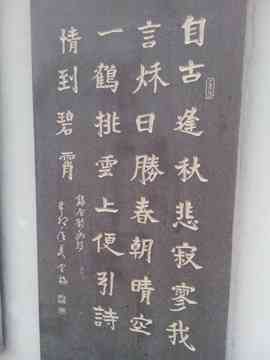 自古逢秋悲寂寥我
言秋日勝春朝晴空
一鶴排雲上便引詩
情到碧霄